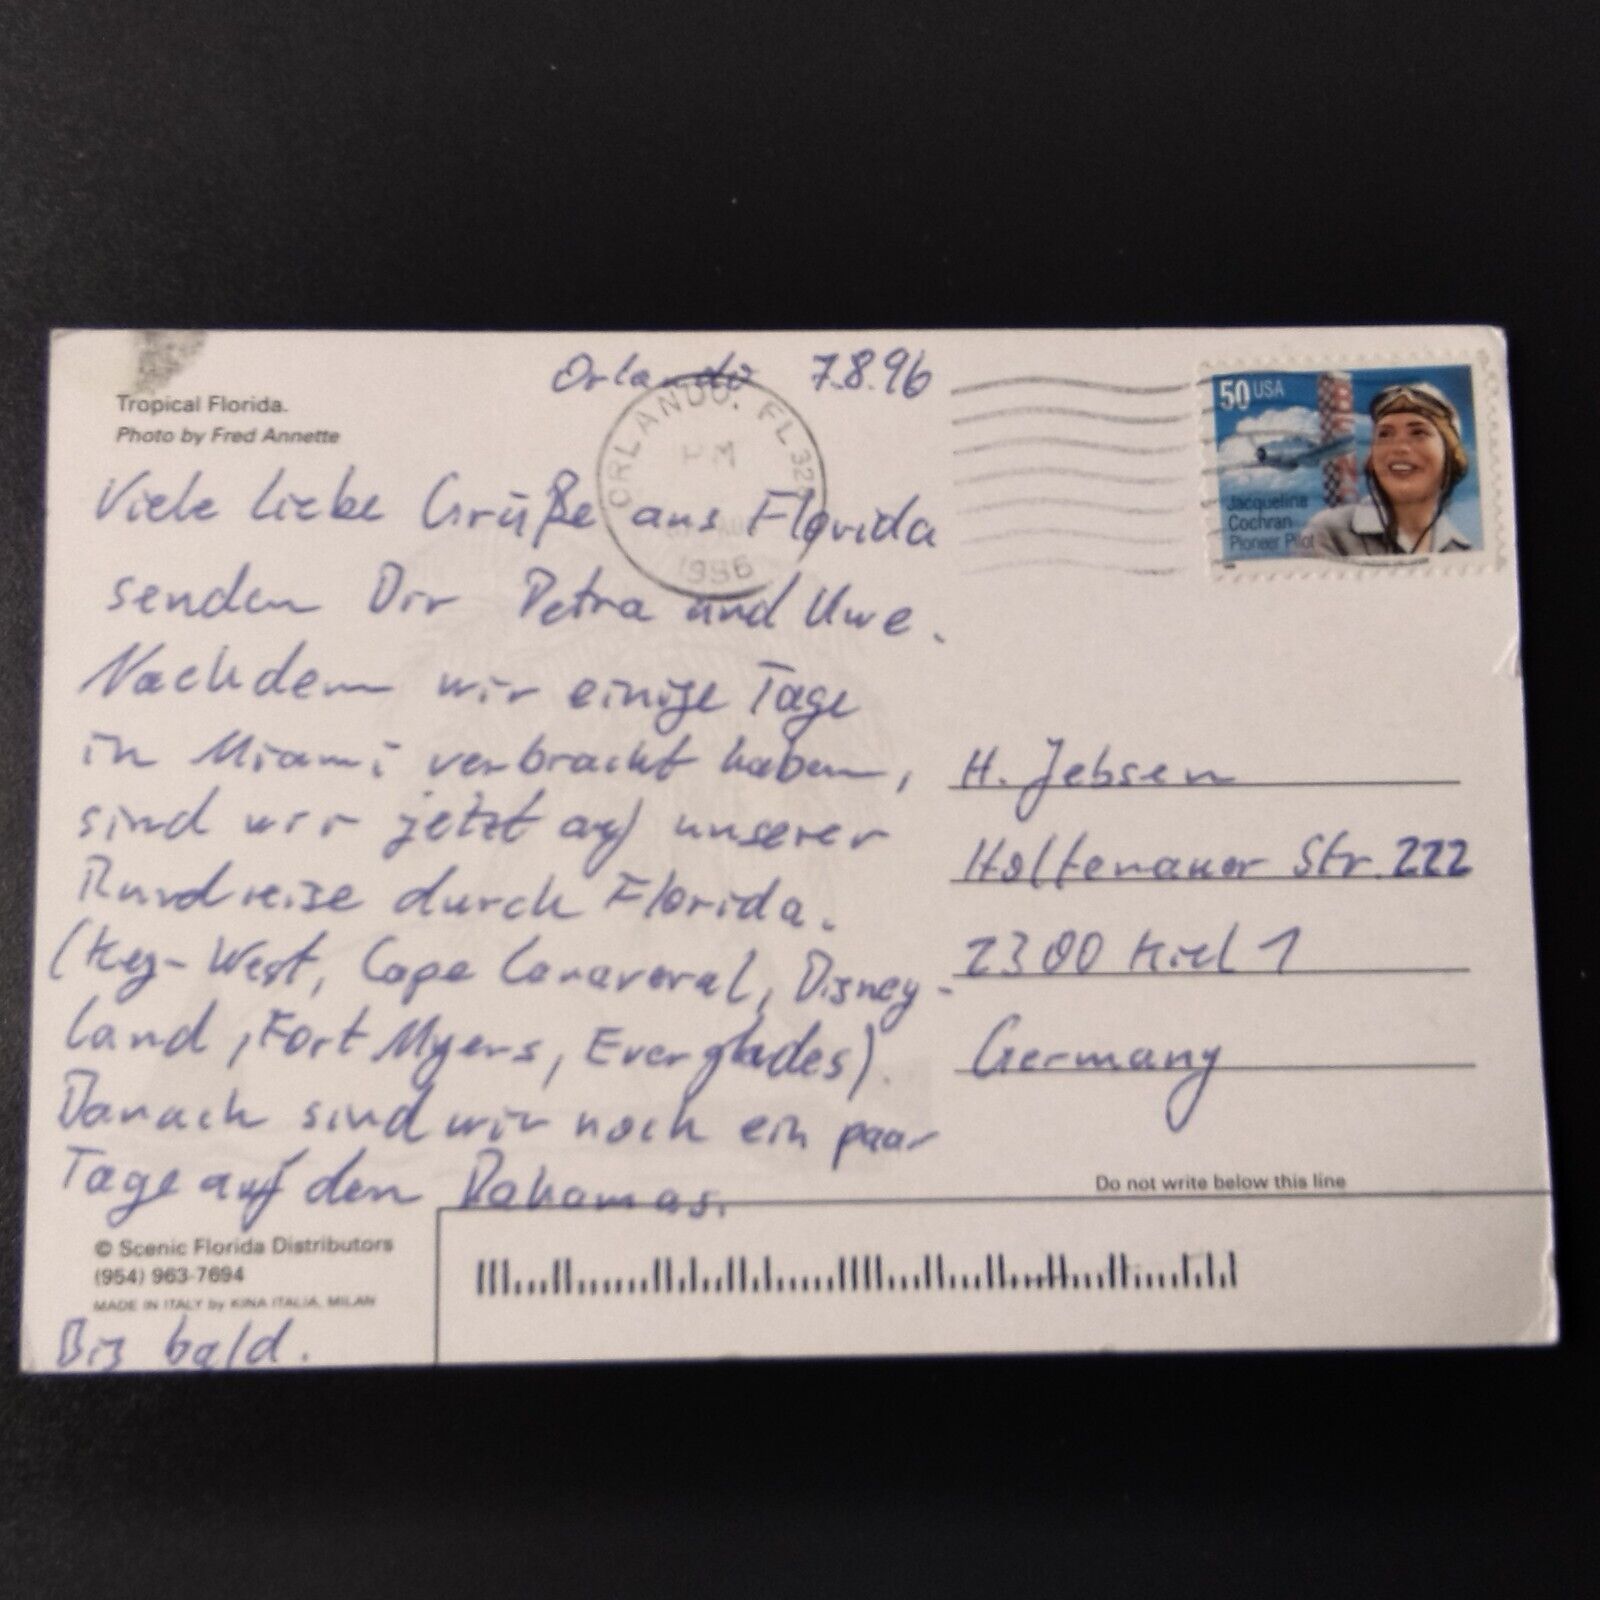 Orlando 7.8.96
Tropical Florida.
Photo by Fred Annette
ORLANDO, FL 32
PM
1996
50 USA
Jacqueline
Cochran
Pioneer Pilot
Viele liebe Grüße aus Florida
senden Dir Petra und Uwe.
Nachdem wir einige Tage
in Miami verbracht haben,
sind wir jetzt auf unserer
Rundreise durch Florida.
(Key-West, Cape Canaveral, Disney-
land, Fort Myers, Everglades).
Danach sind wir noch ein paar
Tage auf den Bahamas.
© Scenic Florida Distributors
(954) 963-7694
MADE IN ITALY by KINA ITALIA, MILAN
Bis bald.
H. Jebsen
Holtenauer Str. 222
2300 Kiel 1
Germany
Do not write below this line